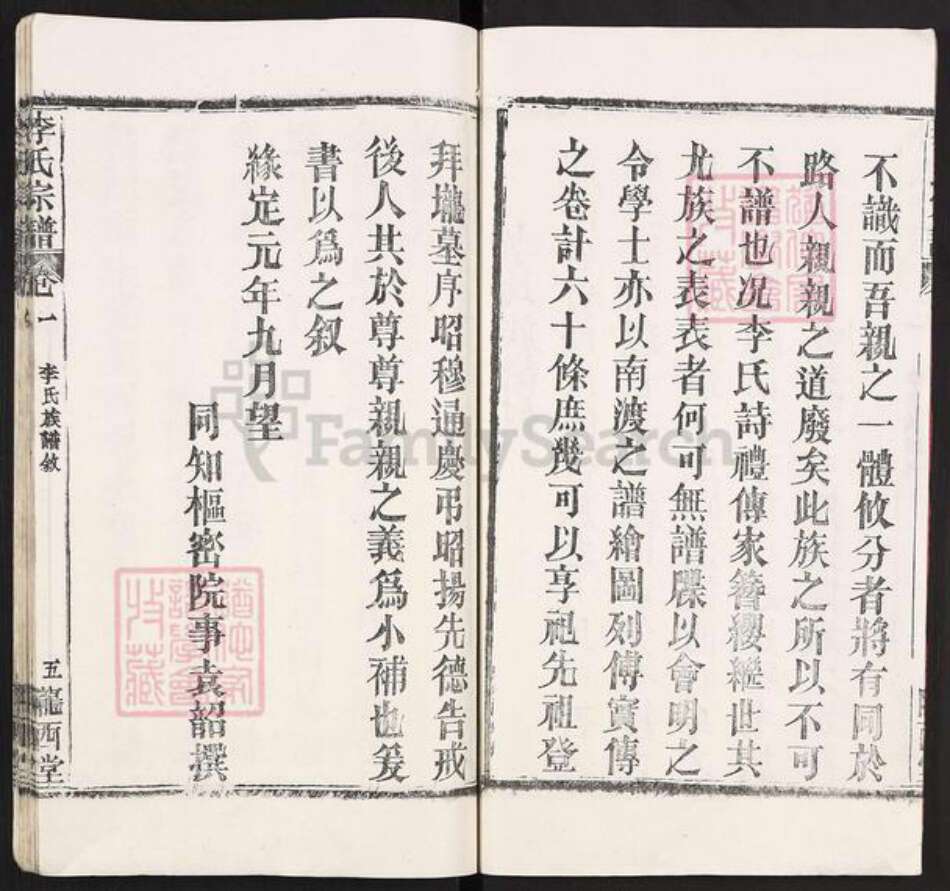 不識而吾親之一體攸分者將有同於
路人親親之道廢矣此族之所以不可
不譜也况李氏詩禮傳家簪纓繼世其
尤族之表表者何可無譜牒以會明之
令學士亦以南渡之譜繪圖列傳實傳
之卷計六十條庶幾可以享祖先祖登
拜壠墓序昭穆通慶弔昭揚先德告戒
後人其於尊尊親親之義為小補也爰
書以為之叙
緣定元年九月望
同知樞密院事袁韶撰
李氏宗譜
卷一
李氏族譜敘
五
龍西堂
FamilySearch